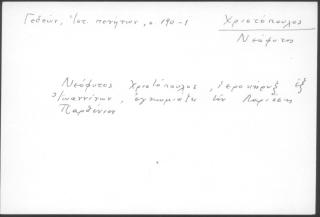 Γεδεών, Ἱστ. πενήτων, σ. 190-1
Χριστόπουλος
Νεόφυτος
Νεόφυτος Χριστόπουλος, ἱεροκήρυξ ἐξ
Ἰωαννίνων, ἐγκωμιάζει τὸν Λαρίσης
Παρθένιον